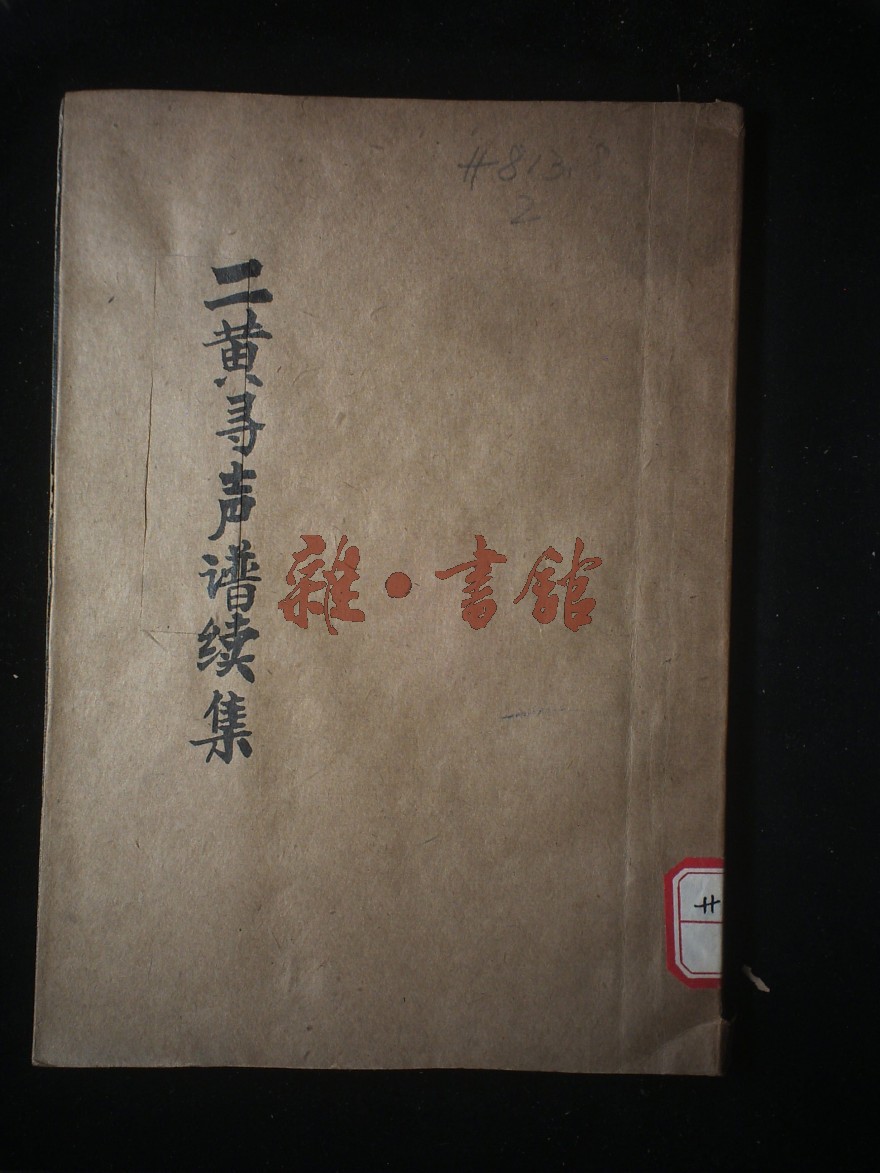 二黄寻声谱续集
雜·書館
2